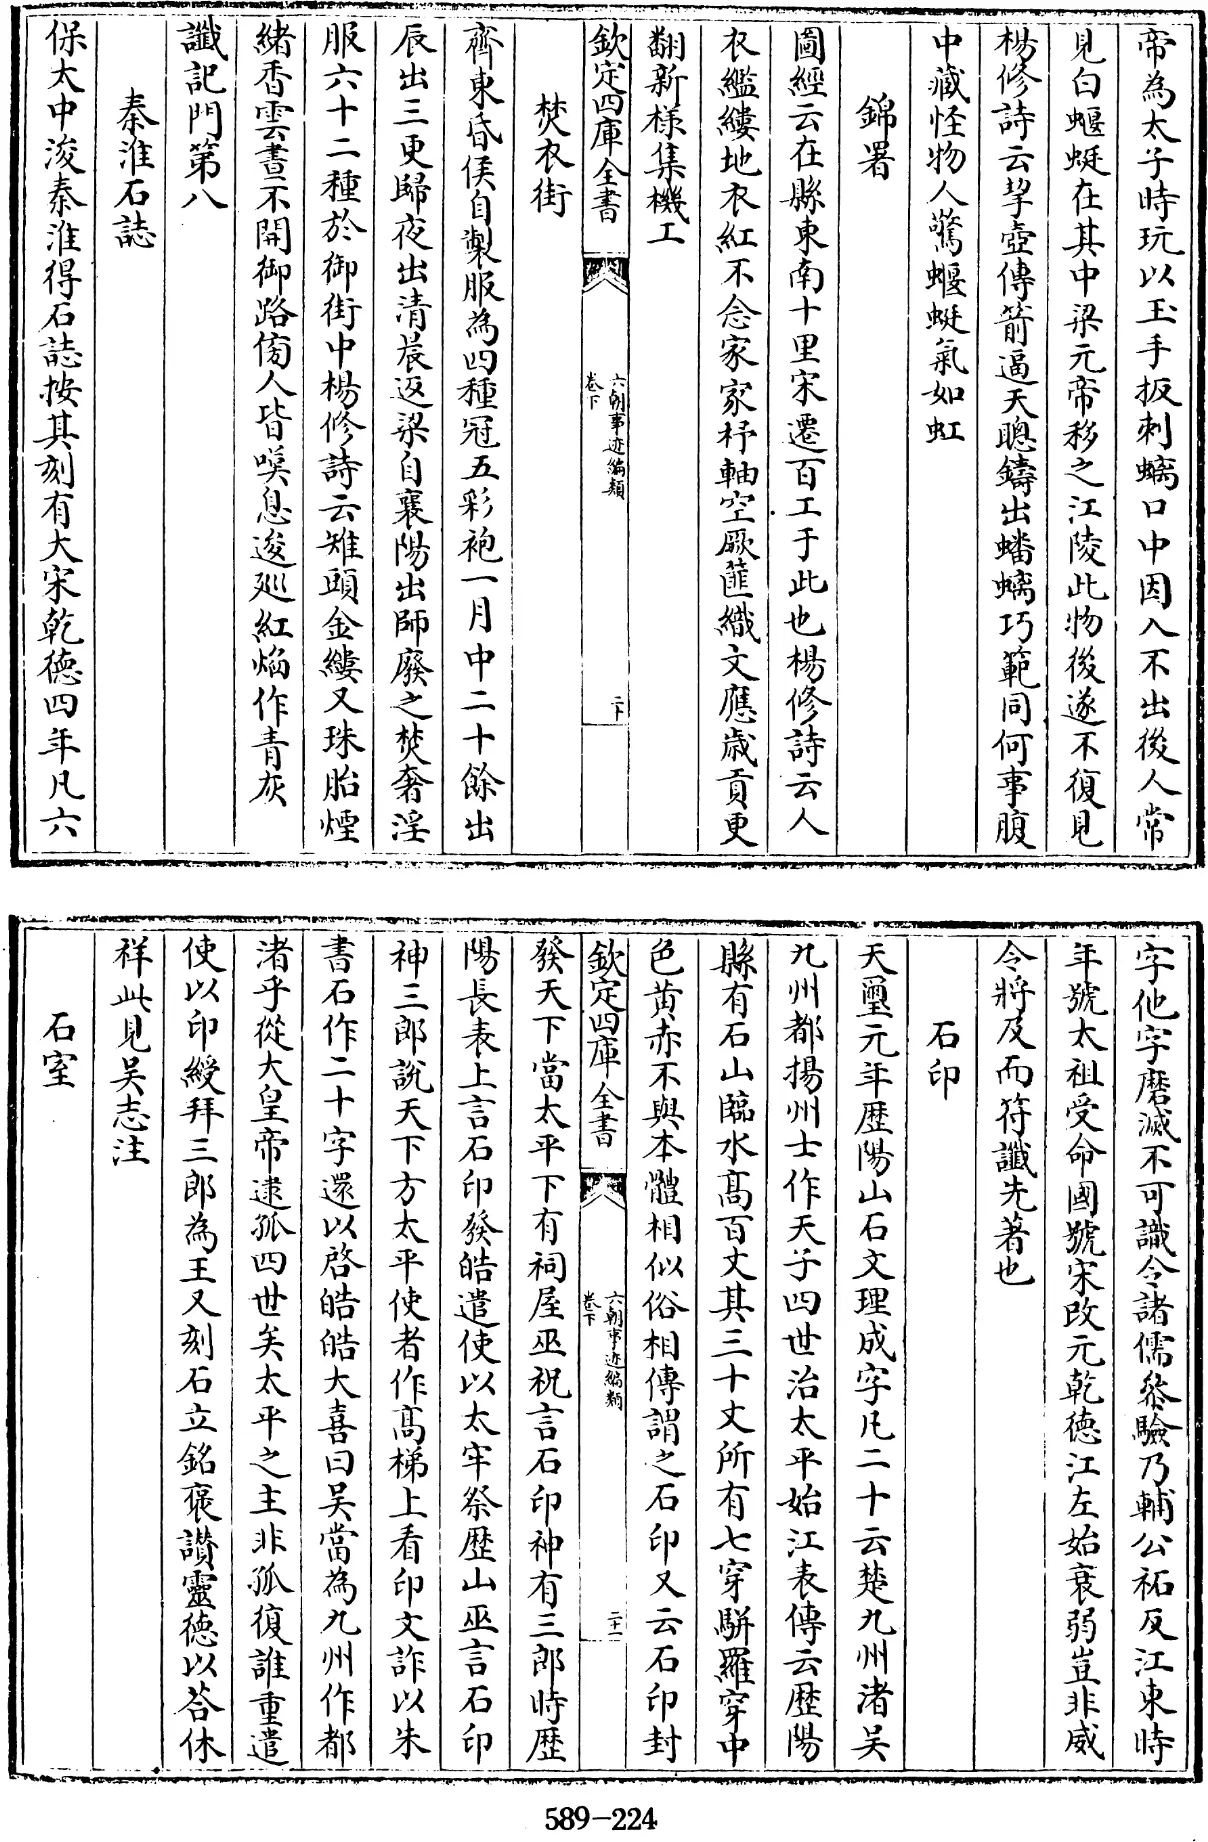 帝為太子時玩以玉手扳刺螭口中因入不出後人常
見白蝘蜓在其中梁元帝移之江陵此物後遂不復見
楊修詩云挈壺傳箭逼天聰鑄出蟠螭巧範同何事腹
中藏怪物人驚蝘蜓氣如虹
錦署
圖經云在縣東南十里宋遷百工于此也楊修詩云人
衣繿縷地衣紅不念家家杼軸空厥篚織文應歲貢更
翻新様集機工
欽定四庫全書
六朝事迹編類
卷下
二十
焚衣街
齊東昏侯自製服為四種冠五彩袍一月中二十餘出
辰出三更歸夜出清晨返梁自襄陽出師廢之焚奢淫
服六十二種於御街中楊修詩云雉頭金縷又珠胎煙
緒香雲晝不開御路傍人皆嘆息逡巡紅焰作青灰
讖記門第八
秦淮石誌
保太中浚秦淮得石誌按其刻有大宋乾德四年凡六
字他字磨滅不可識令諸儒叅驗乃輔公祏反江東時
年號太祖受命國號宋改元乾德江左始衰弱豈非威
令將及而符讖先著也
石印
天璽元年歷陽山石文理成字凡二十云楚九州渚吴
九州都揚州士作天子四世治太平始江表傳云歷陽
縣有石山臨水髙百丈其三十丈所有七穿駢羅穿中
色黄赤不與本體相似俗相傳謂之石印又云石印封
欽定四庫全書
六朝事迹編類
卷下
二十一
發天下當太平下有祠屋巫祝言石印神有三郎時歴
陽長表上言石印發皓遣使以太牢祭歴山巫言石印
神三郎說天下方太平使者作髙梯上看印文詐以朱
書石作二十字還以啓皓皓大喜曰吴當為九州作都
渚乎從大皇帝逮孤四世矣太平之主非孤復誰重遣
使以印綬拜三郎為王又刻石立銘襃讃靈德以荅休
祥此見吴志注
石室
589-224